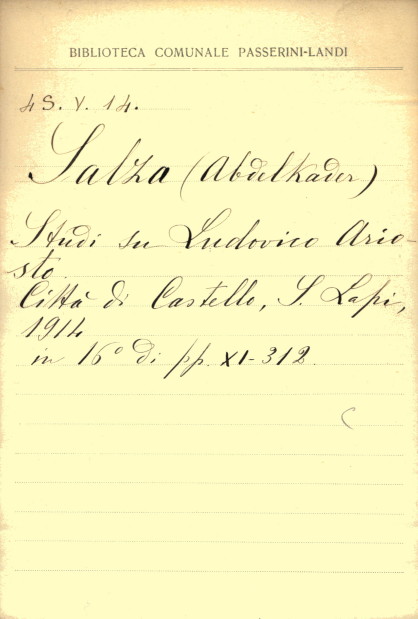 BIBLIOTECA COMUNALE PASSERINI-LANDI
4S. V. 14.
Salza (Abdelkader)
Studi su Ludovico Ario-
sto.
Città di Castello, S. Lapi,
1914
in 16° di pp. XI-312.